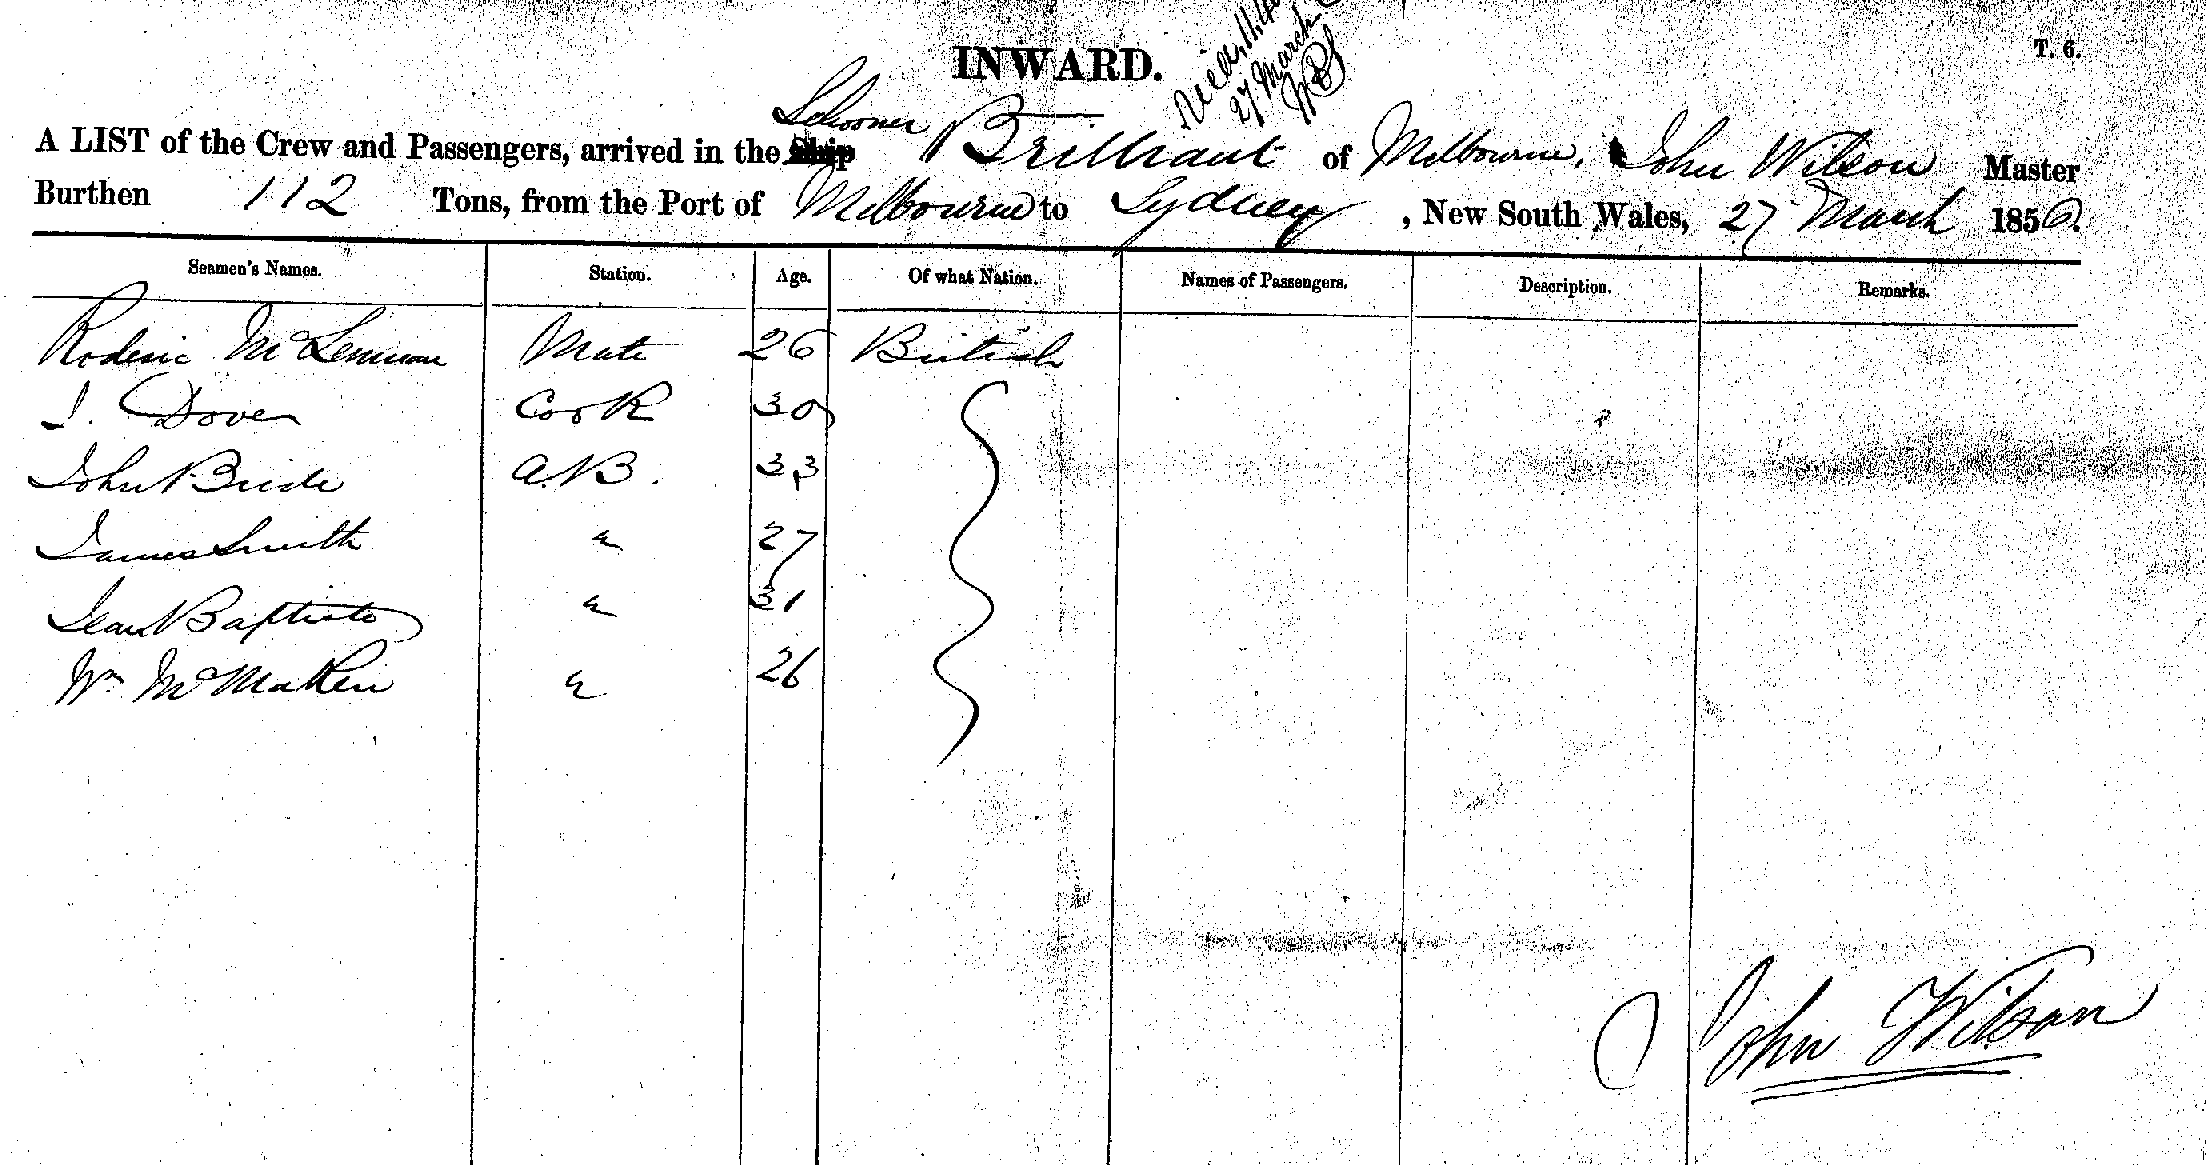 INWARD.
T. 6.
27 March
A LIST of the Crew and Passengers, arrived in the Ship Schooner Brilliant of Melbourne, John Wilson Master
Burthen 112 Tons, from the Port of Melbourne to Sydney, New South Wales, 27 March 1856.
Seamen's Names. Station. Age. Of what Nation. Names of Passengers. Description. Remarks.
Roderic McLennan Mate 26 British
J. Dover Cook 30
John Bride A.B. 33
James Smith " 27
Jean Baptiste " 31
Wm McMakin " 26
John Wilson